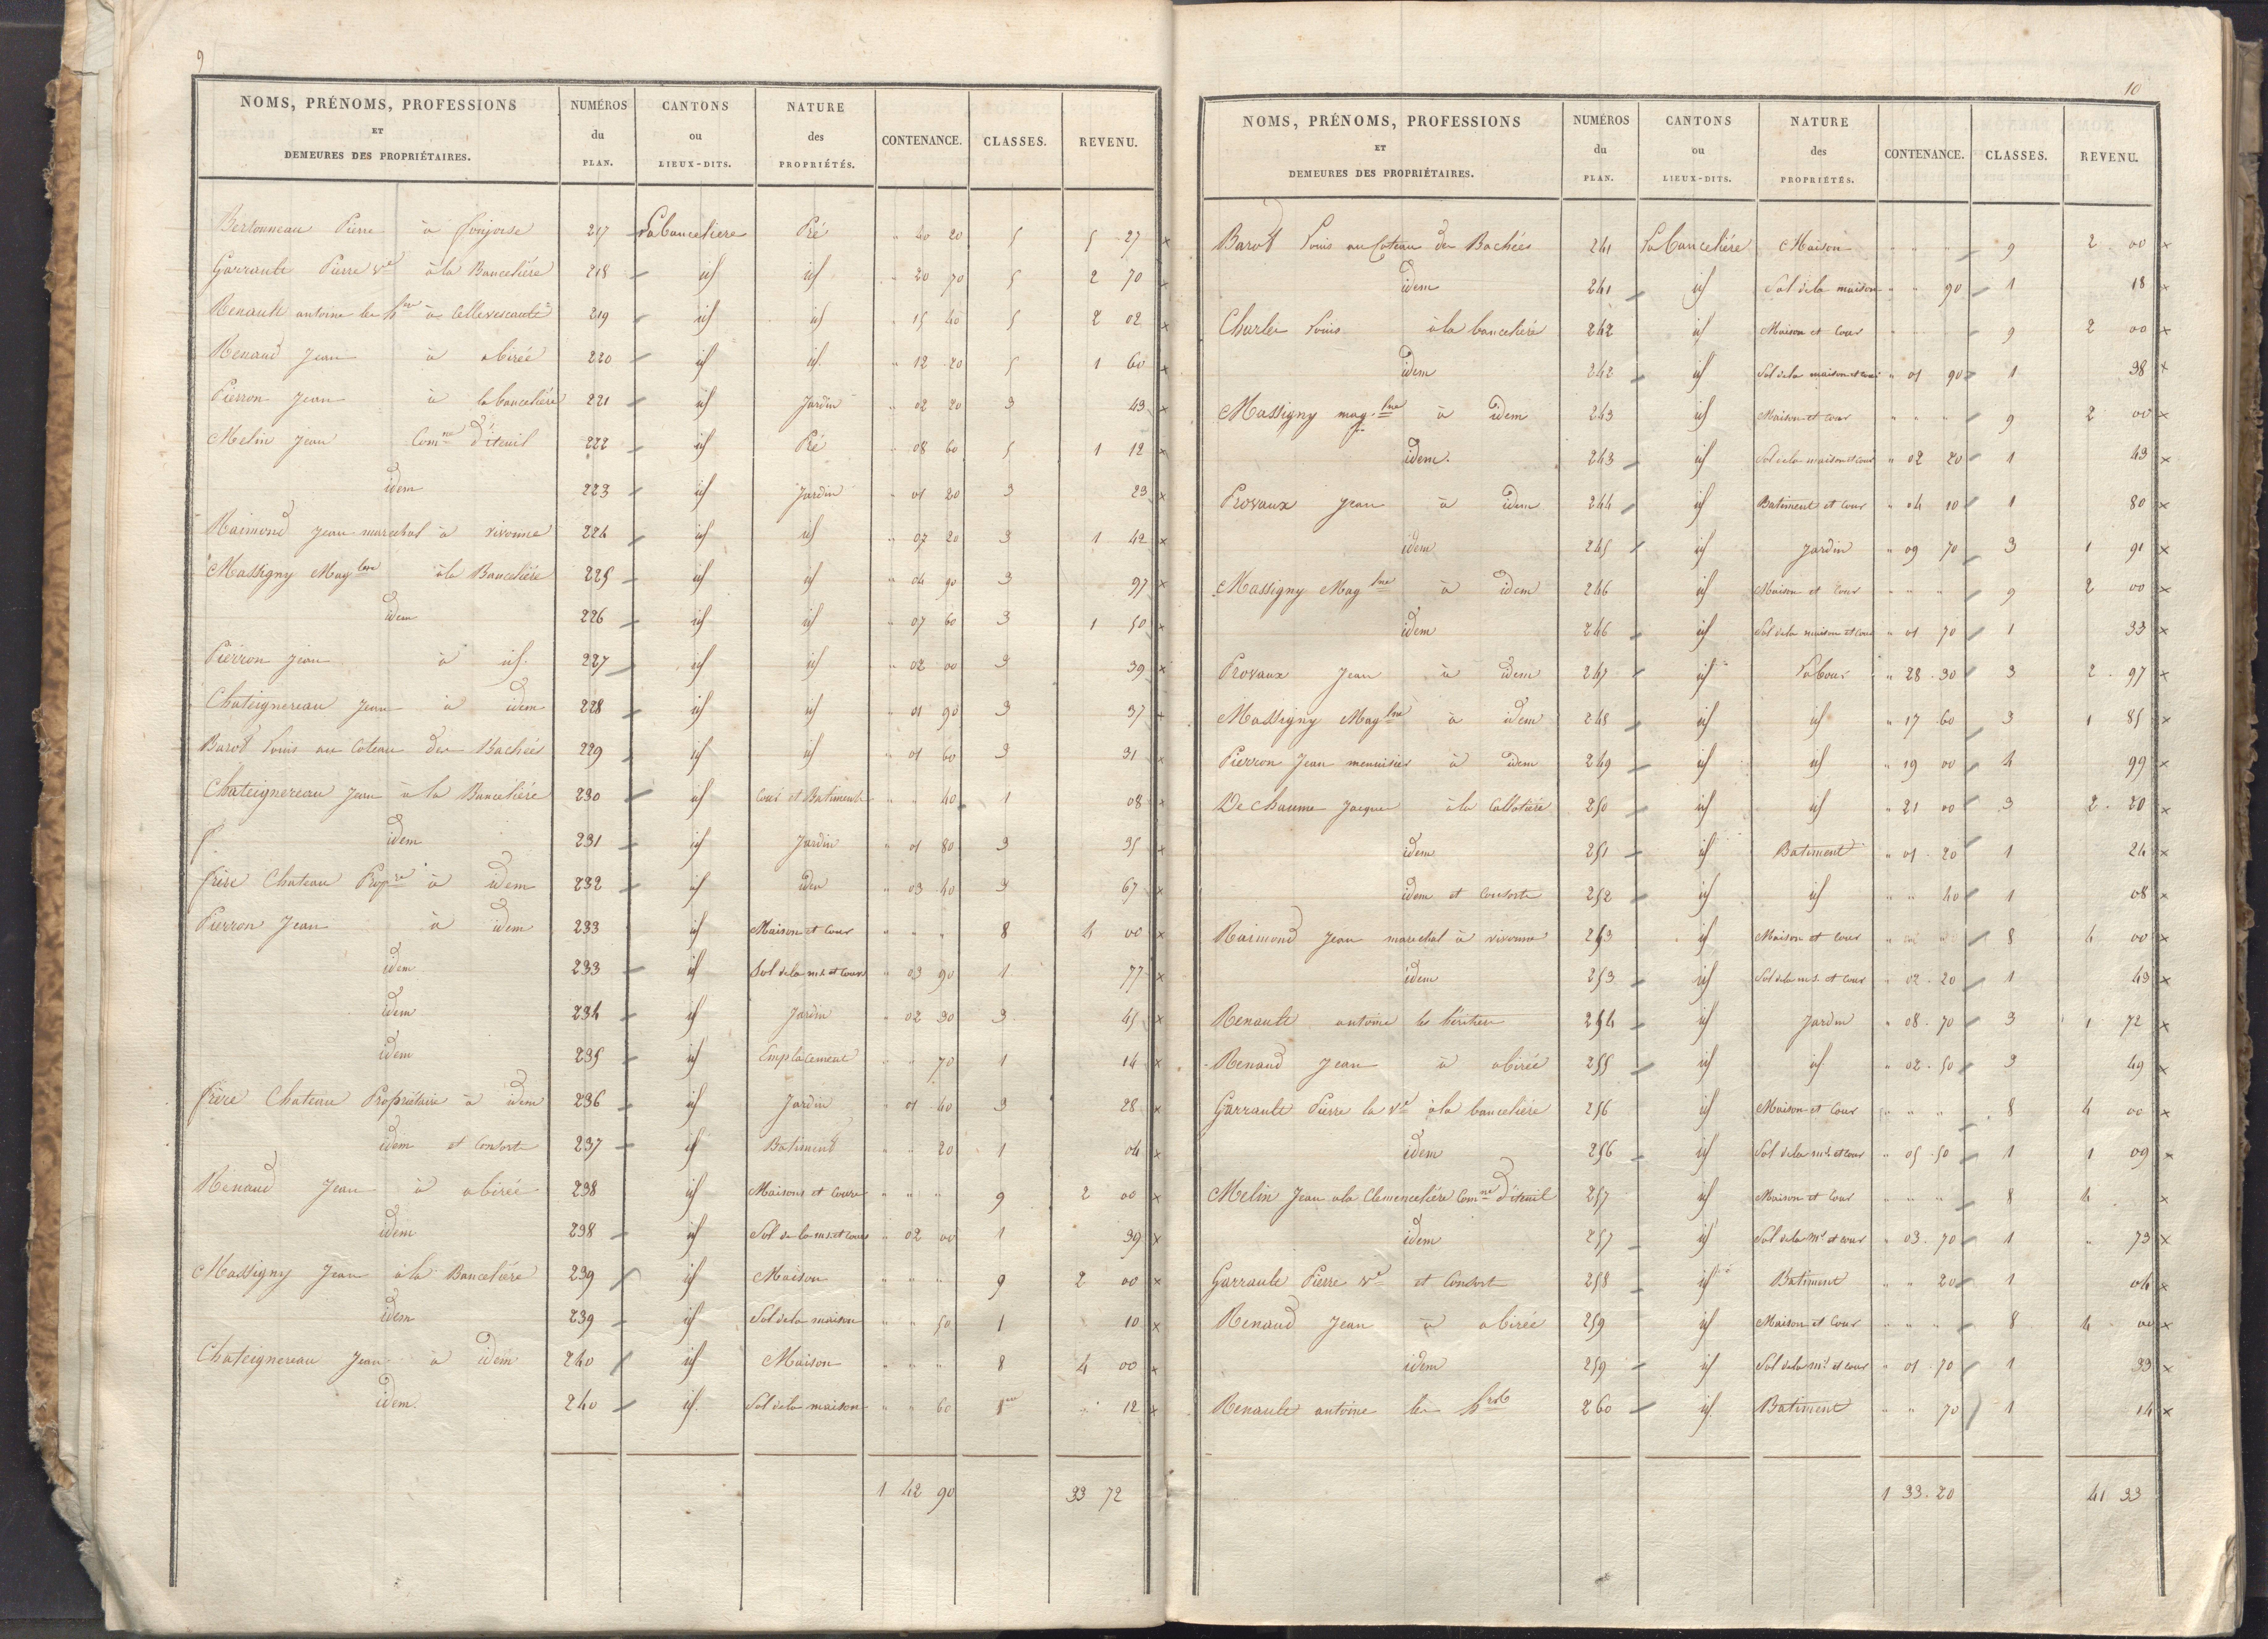 9
NOMS, PRÉNOMS, PROFESSIONS ET DEMEURES DES PROPRIÉTAIRES. NUMÉROS du PLAN. CANTONS ou LIEUX-DITS. NATURE des PROPRIÉTÉS. CONTENANCE. CLASSES. REVENU.
Bertonneau Pierre à 217 La bancelière Pré " 40 20 5 5 27 x
Garrault Pierre Ve à la Bancelière 218 id id " 20 70 5 2 70 x
Renault antoine les hers à Cellevescault 219 id id " 15 40 5 2 02 x
Renaud Jean à abirée 220 id id. " 12 20 5 1 60 x
Pierron Jean à la bancelière 221 id Jardin " 02 20 3 43 x
Melin Jean Comne d'iteuil 222 id Pré " 08 60 5 1 12 x
idem 223 id Jardin " 01 20 3 23 x
Raimond Jean marechal à vivonne 224 id id " 07 20 3 1 42 x
Massigny Maglene à la Bancelière 225 id id " 04 90 3 97 x
idem 226 id id " 07 60 3 1 50 x
Pierron Jean à id. 227 id id " 02 00 3 39 x
Chateignereau Jean à idem 228 id id " 01 90 3 37 x
Barot Louis au Coteau des Bachées 229 id id " 01 60 3 31 x
Chateignereau Jean à la Bancelière 230 id Cour et Batiment " " 40 1 08 x
idem 231 id Jardin " 01 80 3 35 x
frère Chateau Propre à idem 232 id idem " 03 40 3 67 x
Pierron Jean à idem 233 id Maison et Cour " " " 8 4 00 x
idem 233 id Sol de la m.s. et Cour " 03 90 1 77 x
idem 234 id Jardin " 02 30 3 45 x
idem 235 id Emplacement " " 70 1 14 x
frère Chateau Propriétaire à idem 236 id Jardin " 01 40 3 28 x
idem et Consort 237 id Batiment " " 20 1 04 x
Renaud Jean à abirée 238 id Maisons et Cours " " " 9 2 00 x
idem 238 id Sol de la ms. et Cours " 02 00 1 39 x
Massigny Jean à la Bancelière 239 id Maison " " " 9 2 00 x
idem 239 id Sol de la maison " " 50 1 10 x
Chateignereau Jean à idem 240 id Maison " " " 8 4 00 x
idem. 240 id. Sol de la maison " " 60 1re " 12 x
1 42 90 33 72
10
NOMS, PRÉNOMS, PROFESSIONS ET DEMEURES DES PROPRIÉTAIRES. NUMÉROS du PLAN. CANTONS ou LIEUX-DITS. NATURE des PROPRIÉTÉS. CONTENANCE. CLASSES. REVENU.
Barot Louis au Coteau des Bachées 241 La bancelière Maison " " " 9 2 00 x
idem 241 id Sol de la maison " " 90 1 18 x
Charles Louis à la bancelière 242 id Maison et Cour " " " 9 2 00 x
idem 242 id Sol de la maison et cour " 01 90 1 38 x
Massigny mag.lne à idem 243 id Maison et cour " " " 9 2 00 x
idem. 243 id Sol de la maison et cour " 02 20 1 43 x
Provaux Jean à idem 244 id Batiment et Cour " 04 10 1 80 x
idem 245 id Jardin " 09 70 3 1 91 x
Massigny Maglne à idem 246 id Maison et Cour " " " 9 2 00 x
idem 246 id Sol de la maison et Cour " 01 70 1 33 x
Provaux Jean à idem 247 id Labour " 28 30 3 2 97 x
Massigny Maglne à idem 248 id id " 17 60 3 1 85 x
Pierron Jean menuisier à idem 249 id id " 19 00 4 99 x
De chaume Jacque à la 250 id id " 21 00 3 2 20 x
idem 251 id Batiment " 01 20 1 24 x
idem et Consorts 252 id id " " 40 1 08 x
Raimond Jean marechal à vivonne 253 id Maison et Cour 8 4 00 x
idem 253 id Sol de la m.s. et Cour " 02 20 1 43 x
Renault antoine les héritiers 254 id Jardin " 08 70 3 1 72 x
Renaud Jean à abirée 255 id id. " 02 50 3 49 x
Garrault Pierre la Ve à la bancelière 256 id Maison et Cour " " " 8 4 00 x
idem 256 id Sol de la ms. et cour " 05 50 1 1 09 x
Melin Jean à la Clemencelière Comne d'iteuil 257 id Maison et Cour " " " 8 4 x
idem 257 id Sol de la ms et cour " 03 70 1 " 73 x
Garrault Pierre Ve et Consort 258 id Batiment " " 20 1 04 x
Renaud Jean à abirée 259 id Maison et Cour " " " 8 4 00 x
idem 259 id Sol de la ms et cour " 01 70 1 33 x
Renault antoine les hers 260 id. Batiment " " 70 1 14 x
1 33 20 41 33